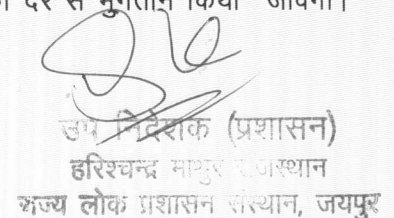 दर से भुगतान किया जावेगा।
उप निदेशक (प्रशासन)
हरिश्चन्द्र माथुर राजस्थान
राज्य लोक प्रशासन संस्थान, जयपुर